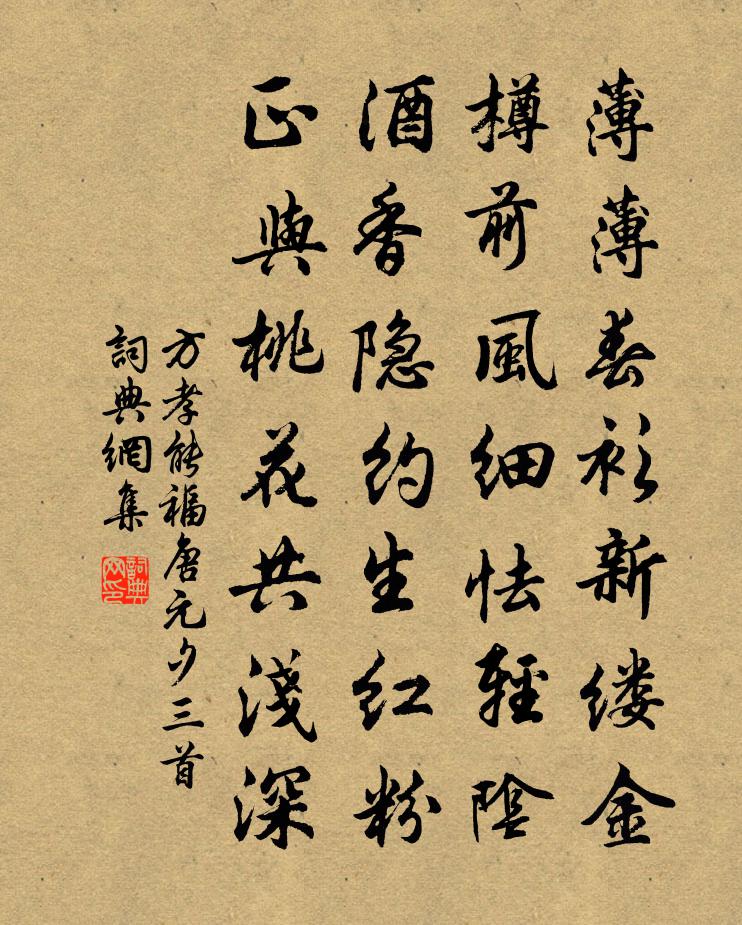 薄薄春衫新缕金
樽前風细怯輕陰
酒香隐约生红粉
正與桃花共淺深
方孝能福唐元夕三首
詞典網集
詞典网印